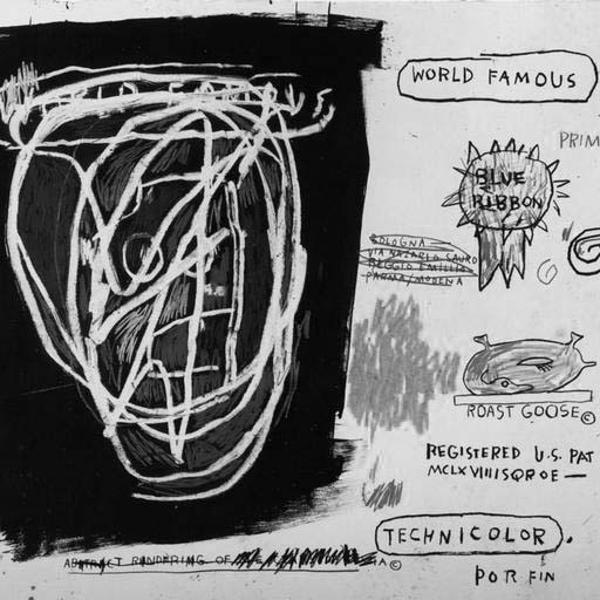 WORLD FAMOUS
WORLD FAMOUS
PRIM
BLUE
RIBBON
BOLOGNA
VIA NAZARIO SAURO
REGGIO EMILIA
PARMA/MODENA
ROAST GOOSE©
REGISTERED U.S. PAT
MCLXVIIIISQROE—
TECHNICOLOR.
POR FIN
ABSTRACT RENDERING OF